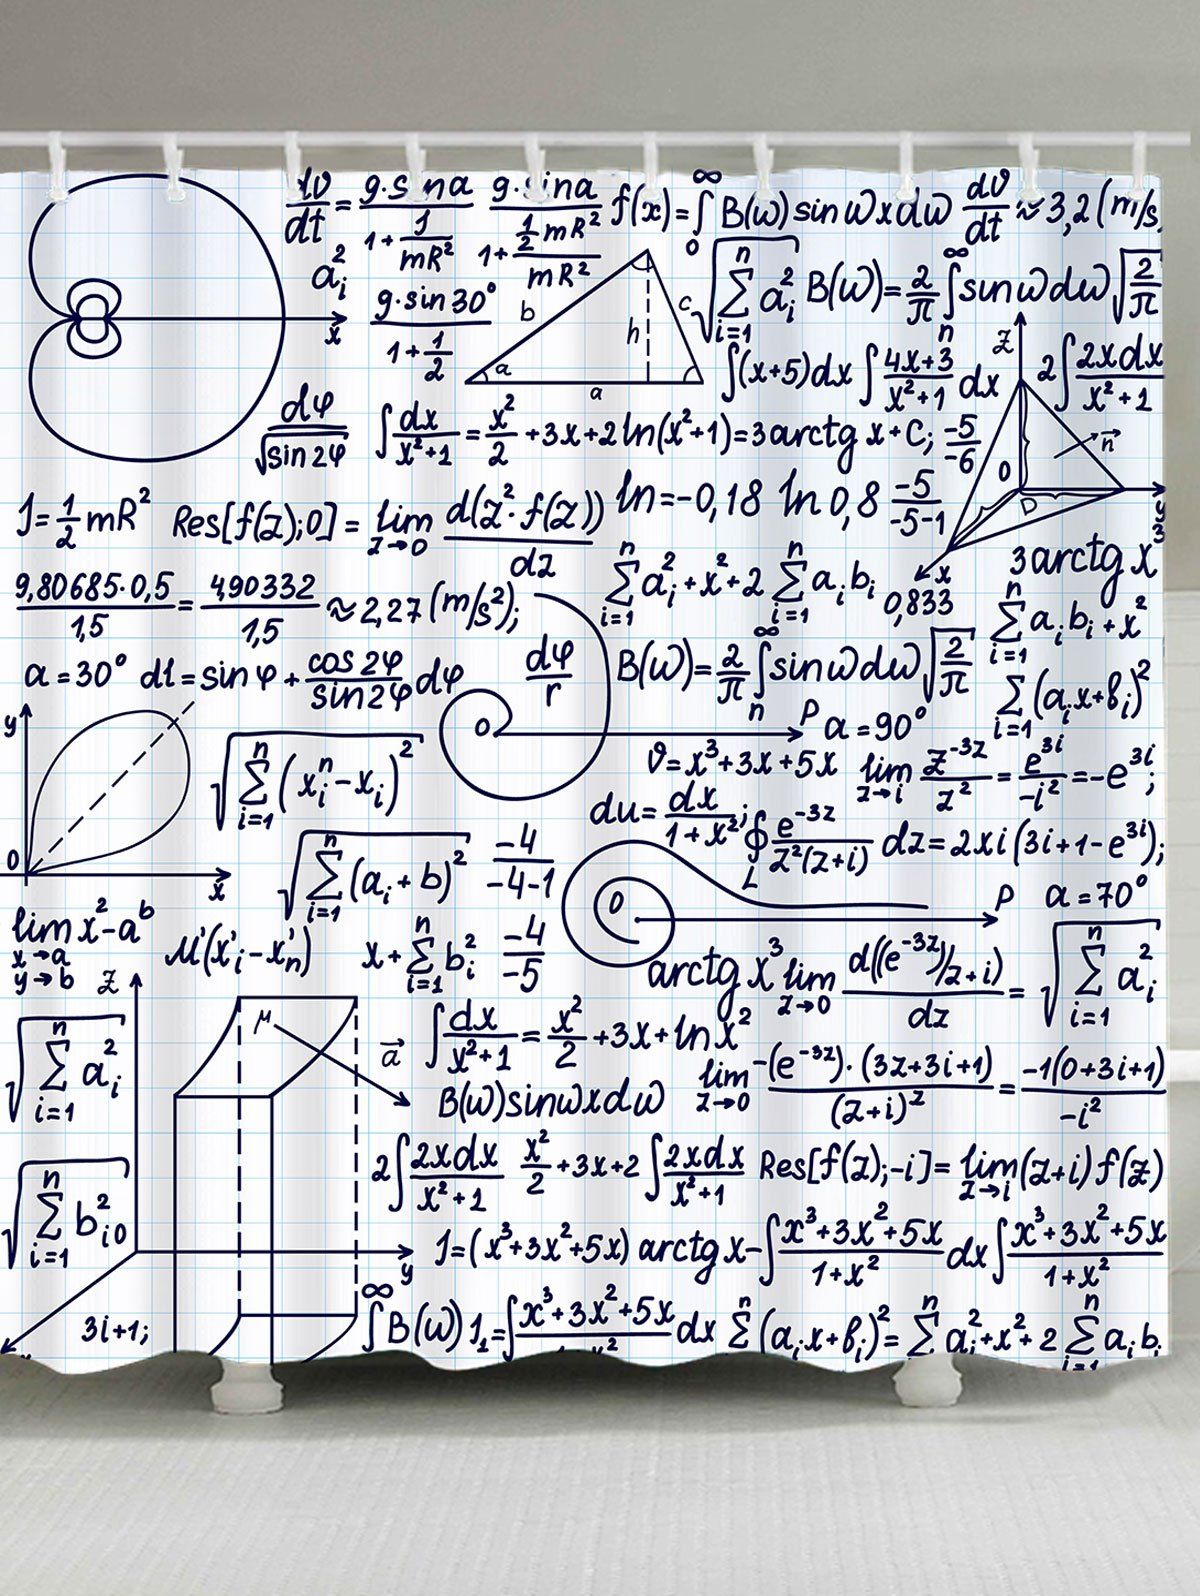 dv/dt = g·sina / 1+ 1/mR² g·sina / 1+ ½mR²/mR² f(x)=∫₀^∞ B(ω)sinωxdω dϑ/dt ≈3,2(m/s
aᵢ² g·sin30° / 1+½ b h c a a √∑ⁿᵢ₌₁ aᵢ² B(ω)=2/π ∫ₙ^∞ sinωdω √2/π
x ∫(x+5)dx ∫4x+3/x²+1 dx Z 2∫2xdx/x²+1
dφ/√sin2φ ∫dx/x²+1 = x²/2 +3x+2ln(x²+1)=3arctg x+C; -5/-6 0 n⃗ D y x
J=½mR² Res[f(z);0] = lim z→0 d(z²·f(z))/dz ln=-0,18 ln0,8 -5/-5-1
3arctg x³
9,80685·0,5/1,5 = 490332/1,5 ≈2,27(m/s²); ∑ⁿᵢ₌₁ aᵢ²+x²+2 ∑ⁿᵢ₌₁ aᵢbᵢ 0,833 ∑ⁿᵢ₌₁ aᵢbᵢ+x²
a=30° dl=sinφ+ cos2φ/sin2φ dφ dφ/r B(ω)=2/π ∫ₙ^∞ sinωdω √2/π ∑ᵢ₌₁ (aᵢx+bᵢ)²
y 0 P a=90°
√∑ⁿᵢ₌₁ (xᵢⁿ-xᵢ)² ϑ=x³+3x+5x lim z→i z⁻³ᶻ/z² = e³ⁱ/-i² =-e³ⁱ;
du= dx/1+x²; ∮ e⁻³ᶻ/z²(z+i) dz=2xi(3i+1-e³ⁱ);
0 x √∑ⁿᵢ₌₁ (aᵢ+b)² -4/-4-1 L 0 P a=70°
lim x²-aᵇ x→a y→b μ'(x'ᵢ-x'ₙ) x+∑ⁿᵢ₌₁ bᵢ² -4/-5 arctg x³ lim z→0 d((e⁻³ᶻ)/z+i)/dz = √∑ⁿᵢ₌₁ aᵢ²
z √∑ⁿᵢ₌₁ aᵢ² μ a⃗ ∫dx/x²+1 = x²/2 +3x+ln x²
B(ω)sinωxdω lim z→0 -(e⁻³ᶻ)·(3z+3i+1)/(z+i)² = -1(0+3i+1)/-i²
√∑ⁿᵢ₌₁ b²ᵢ₀ 2∫2xdx/x²+1 x²/2 +3x+2 ∫2xdx/x²+1 Res[f(z);-i]= lim z→i (z+i)f(z)
y J=(x³+3x²+5x) arctg x-∫x³+3x²+5x/1+x² dx ∫x³+3x²+5x/1+x²
3i+1; ∫^∞ B(ω) J₁=∫x³+3x²+5x/x² dx ∑ⁿ (aᵢx+bᵢ)²= ∑ⁿ aᵢ²+x²+2 ∑ⁿᵢ₌₁ aᵢbᵢ